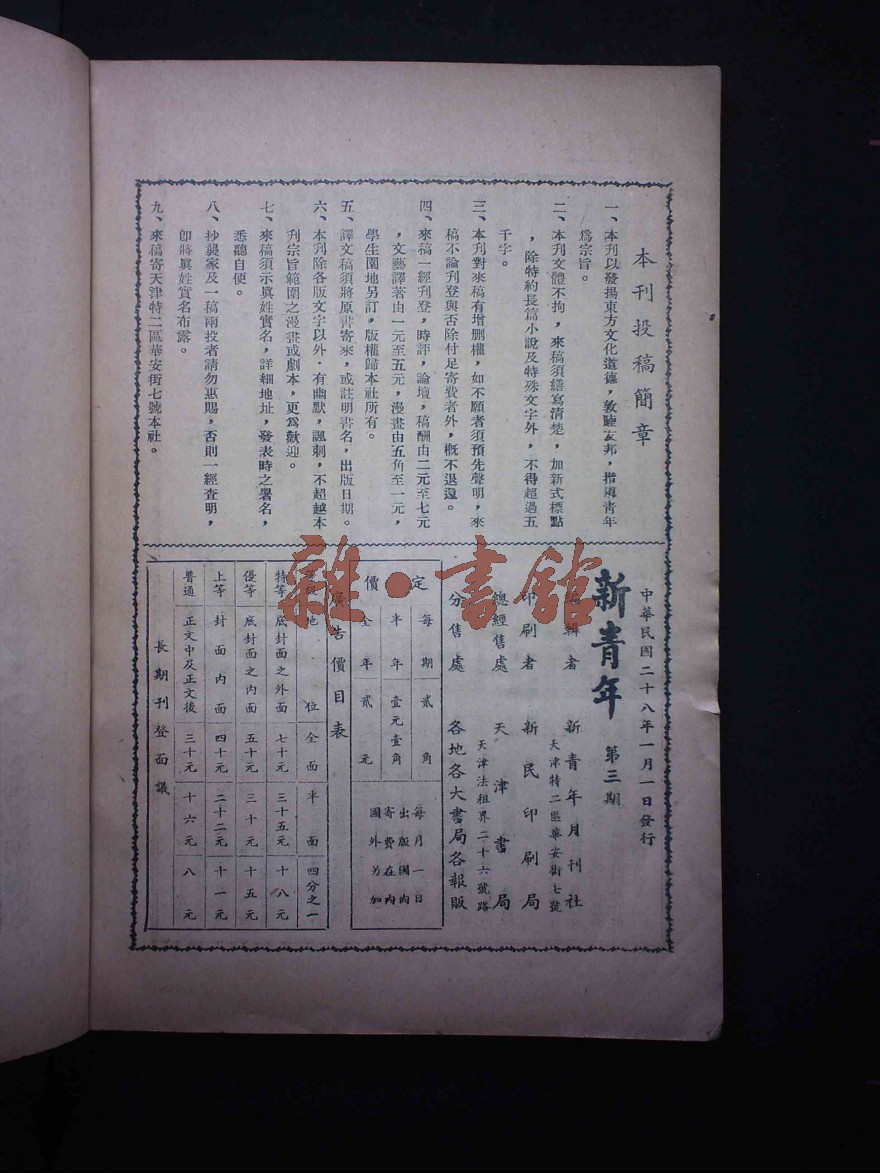 本刊投稿簡章
一、本刊以發揚東方文化道德，敦睦友邦，指導青年
爲宗旨。
二、本刊文體不拘，來稿須繕寫清楚，加新式標點
，除特約長篇小說及特殊文字外，不得超過五
千字。
三、本刊對來稿有增刪權，如不願者須預先聲明，來
稿不論刊登與否除付足寄費者外，槪不退還。
四、來稿一經刊登，時評，論壇，稿酬由二元至七元
，文藝譯著由一元至五元，漫畫由五角至一元，
學生園地另訂，版權歸本社所有。
五、譯文稿須將原書寄來，或註明書名，出版日期。
六、本刊除各版文字以外．有幽默，諷刺，不超越本
刊宗旨範圍之漫畫或劇本，更爲歡迎。
七、來稿須示眞姓實名，詳細地址，發表時之署名，
悉聽自便。
八、抄襲家及一稿兩投者請勿惠賜，否則一經查明，
卽將眞姓實名布露。
九、來稿寄天津特二區華安街七號本社。
中華民國二十八年一月一日發行
新青年 第三期
輯者 新青年月刊社
天津特二區華安街七號
印刷者 新民印刷局
總經售處 天津書局
天津法租界二十六號路
分售處 各地各大書局各報販
定價
每期 貳角
半年 壹元壹角
全年 貳元
每月一日
出版國內
寄費在內
國外另加
廣告價目表
等級 地位 全面 半面 四分之一
特等 底封面之外面 七十元 三十五元 十八元
優等 底封面之內面 五十元 三十元 十五元
上等 封面內面 四十元 二十二元 十一元
普通 正文中及正文後 三十元 十六元 八元
長期刊登面議
雜·書館